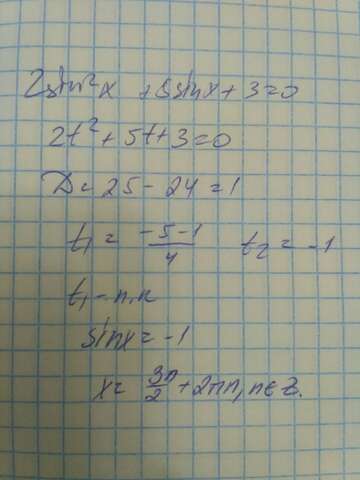 2sin²x + 5sinx + 3 = 0
2t² + 5t + 3 = 0
D = 25 - 24 = 1
t₁ = (-5-1)/4 t₂ = -1
t₁ - п.к
sinx = -1
x = 3π/2 + 2πn, n∈Z.